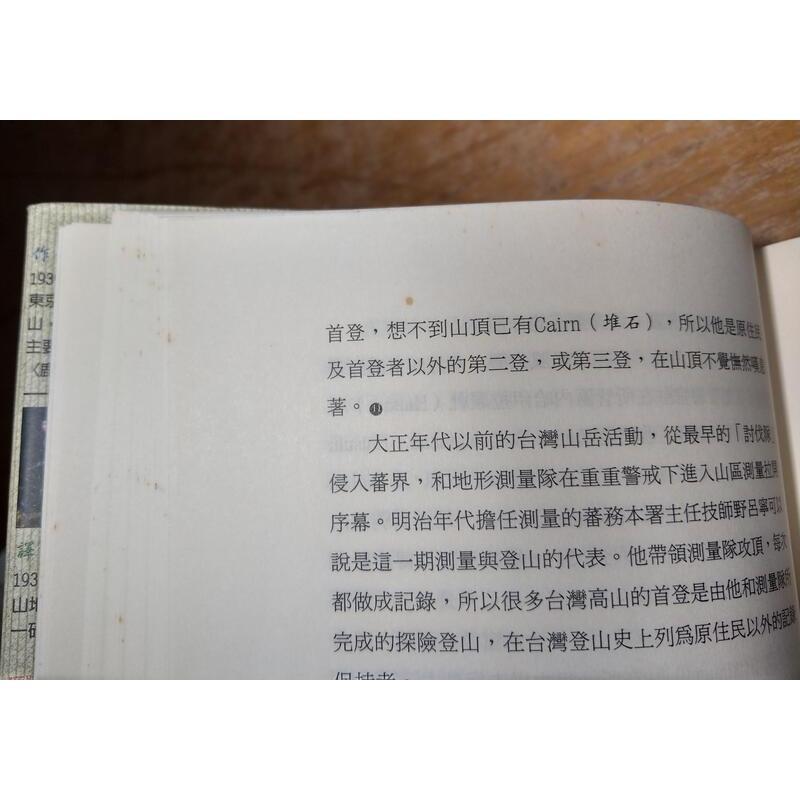 作
193
東京
山，
主要
譯
193
山地
一研
首登，想不到山頂已有Cairn（堆石），所以他是原住民
及首登者以外的第二登，或第三登，在山頂不覺憮然嘆息
著。⓫
大正年代以前的台灣山岳活動，從最早的「討伐隊」
侵入蕃界，和地形測量隊在重重警戒下進入山區測量拉開
序幕。明治年代擔任測量的蕃務本署主任技師野呂寧可以
說是這一期測量與登山的代表。他帶領測量隊攻頂，每次
都做成記錄，所以很多台灣高山的首登是由他和測量隊所
完成的探險登山，在台灣登山史上列爲原住民以外的記錄
保持者。